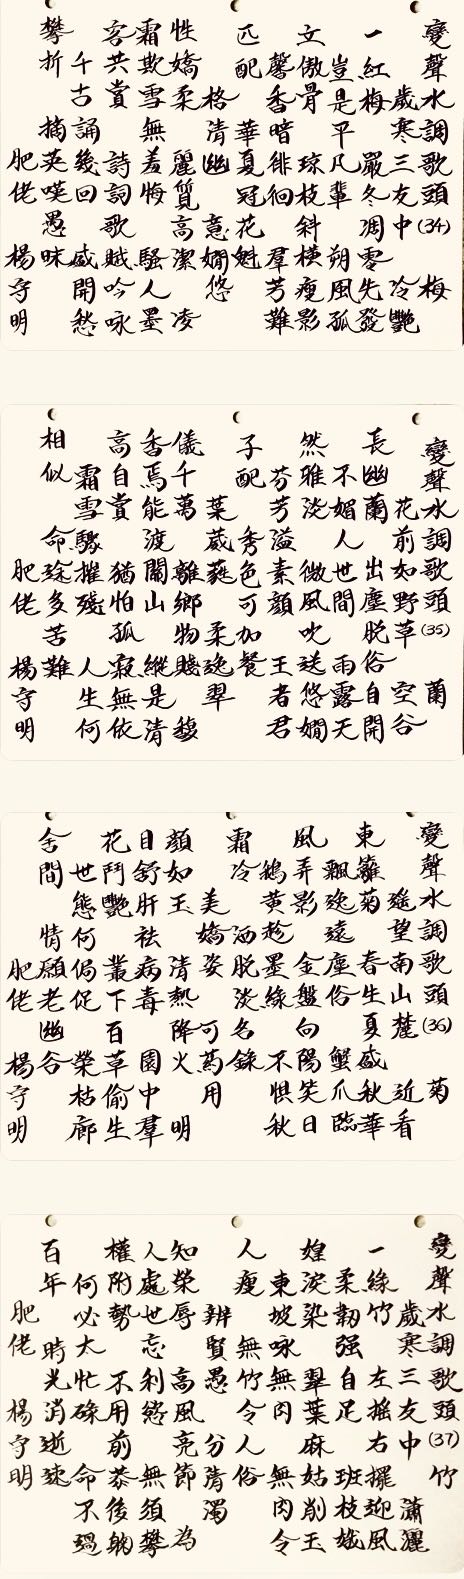 變聲水調歌頭(34) 梅
歲寒三友中 冷艷
一紅梅 嚴冬凋零先發
豈是平凡輩 朔風孤
文傲骨 琼枝斜橫瘦影
馨香暗徘徊 群芳難
匹配 華夏冠花魁
格清幽 意嫺悠
性嬌柔 麗質高潔凌
霜欺雪無羞悔 騷人墨
客共賞 詩詞歌賦吟咏
千古誦幾回 感開愁
攀折 摘英嘆愚昧
肥佬 楊守明
變聲水調歌頭(35) 蘭
花前如野草 空谷
長幽蘭 出塵脫俗自開
不媚人世間 雨露天
然雅淡 微風吹送悠嫺
芬芳溢素顏 王者君
子配 秀色可加餐
葉葳蕤 柔逸翠
儀千萬 離鄉物賤馥
香焉能渡關山 縱是清
高自賞 猶怕孤寂無依
霜雪驟摧殘 人生何
相似 命途多苦難
肥佬 楊守明
變聲水調歌頭(36) 菊
遙望南山麓 近看
東籬菊 春生夏盛秋華
飄逸遠塵俗 蟹爪臨
風弄影 金盤向陽笑日
鵝黃趁墨綠 不惧秋
霜冷 洒脫淡名錄
美嬌姿 可為用
顏如玉 清熱降火明
目舒肝祛病毒 園中群
花鬥艷 叢下百草偷生
世態何侷促 榮枯廊
舍間 情願老幽谷
肥佬 楊守明
變聲水調歌頭(37) 竹
歲寒三友中 瀟灑
一綠竹 左搖右擺迎風
柔韌强自足 班枝娥
媓淚染 翠葉麻姑削玉
東坡咏無肉 無肉令
人瘦 無竹令人俗
辨賢愚 分清濁
知榮辱 高風亮節為
人處世忘利慾 無須攀
權附勢 不用前恭後躬
何必太忙碌 命不過
百年 時光消逝速
肥佬 楊守明